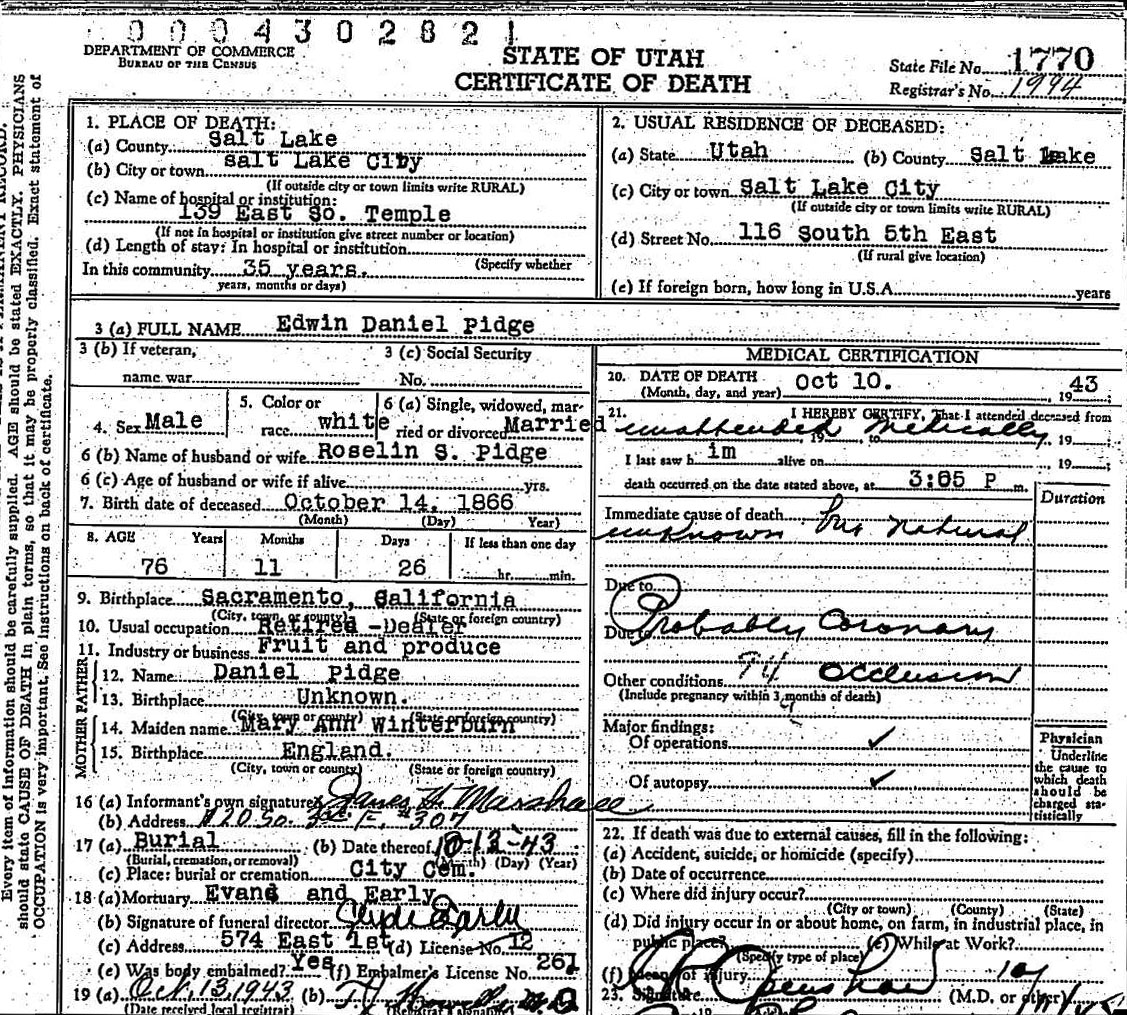 0004302821
DEPARTMENT OF COMMERCE
BUREAU OF THE CENSUS
STATE OF UTAH
CERTIFICATE OF DEATH
State File No. 1770
Registrar's No. 1994
1. PLACE OF DEATH:
(a) County Salt Lake
(b) City or town salt Lake City
(If outside city or town limits write RURAL)
(c) Name of hospital or institution:
139 East So. Temple
(If not in hospital or institution give street number or location)
(d) Length of stay: In hospital or institution
(Specify whether
In this community 35 years.
years, months or days)
2. USUAL RESIDENCE OF DECEASED:
(a) State Utah (b) County Salt Lake
(c) City or town Salt Lake City
(If outside city or town limits write RURAL)
(d) Street No. 116 South 5th East
(If rural give location)
(e) If foreign born, how long in U.S.A. years
3 (a) FULL NAME Edwin Daniel Pidge
3 (b) If veteran,
name war
3 (c) Social Security
No.
4. Sex Male
5. Color or
race white
6 (a) Single, widowed, mar-
ried or divorced Married
6 (b) Name of husband or wife Roselin S. Pidge
6 (c) Age of husband or wife if alive yrs.
7. Birth date of deceased October 14, 1866
(Month) (Day) Year)
8. AGE Years Months Days If less than one day
76 11 26 hr. min.
9. Birthplace Sacramento, California
(City, town, or county) (State or foreign country)
10. Usual occupation Retired -Dealer
11. Industry or business Fruit and produce
FATHER
12. Name Daniel Pidge
13. Birthplace Unknown.
(City, town or county) (State or foreign country)
MOTHER
14. Maiden name Mary Ann Winterburn
15. Birthplace England.
(City, town or county) (State or foreign country)
16 (a) Informant's own signature James H. Marshall
(b) Address #307
17 (a) Burial (b) Date thereof 10-12-43
(Burial, cremation, or removal) (Month) (Day) (Year)
(c) Place: burial or cremation City Cem.
18 (a) Mortuary Evans and Early
(b) Signature of funeral director Clyde Early
(c) Address 574 East 1st (d) License No. 12
(e) Was body embalmed? Yes (f) Embalmer's License No. 261
19 (a) Oct. 13, 1943 (b) M.D.
(Date received local registrar) (Registrar's signature)
MEDICAL CERTIFICATION
20. DATE OF DEATH Oct 10.
(Month, day, and year) , 1943
21. I HEREBY CERTIFY, That I attended deceased from
unattended medically, 19 to , 19 ;
I last saw him alive on , 19 ;
death occurred on the date stated above, at 3:05 P m.
Duration
Immediate cause of death but natural
unknown
Due to
Due to Probably Coronary
Other conditions occlusion
(Include pregnancy within 3 months of death)
Major findings:
Of operations ✓
Of autopsy ✓
Physician
Underline
the cause to
which death
should be
charged sta-
tistically
22. If death was due to external causes, fill in the following:
(a) Accident, suicide, or homicide (specify)
(b) Date of occurrence
(c) Where did injury occur?
(City or town) (County) (State)
(d) Did injury occur in or about home, on farm, in industrial place, in
public place? (e) While at Work?
(Specify type of place)
(f) Means of injury
23. Signature (M.D. or other)
Every item of information should be carefully supplied. AGE should be stated EXACTLY. PHYSICIANS
should state CAUSE OF DEATH in plain terms, so that it may be properly classified. Exact statement of
OCCUPATION is very important. See instructions on back of certificate.